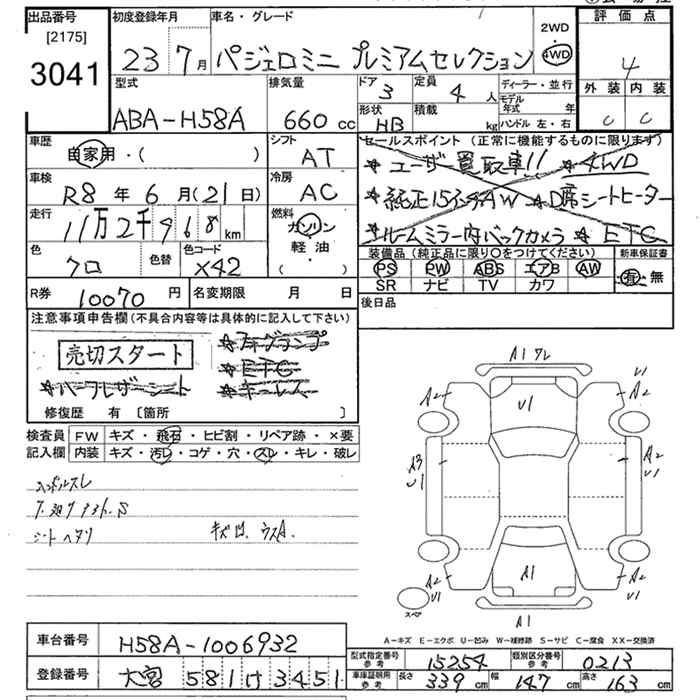 出品番号
[2175]
3041
初度登録年月
23 7月
車名・グレード
パジェロミニ プレミアムセレクション
2WD
4WD
評価点
4
外装 内装
C C
型式
ABA-H58A
排気量
660 cc
ドア 3
定員 4 人
形状 HB
積載 kg
ディーラー・並行
モデル年式 年
ハンドル 左・右
車歴
自家用・( )
シフト
AT
車検
R8年6月(21日)
冷房
AC
走行
11万2千968km
燃料
ガソリン
軽油
( ・ )
色
クロ
色替
色コード
X42
セールスポイント (正常に機能するものに限ります)
★ユーザー買取車!! ★4WD
★純正15インチAW ★D席シートヒーター
★ルームミラー内バックカメラ ★ETC
装備品 (純正品に限り○をつけてください)
PS PW ABS エアB AW
SR ナビ TV カワ
新車保証書
有・無
R券 10070円
名変期限 月 日
後日品
注意事項申告欄 (不具合内容等は具体的に記入して下さい)
売切スタート
★フォグランプ
★ETC
★ハーフレザーシート ★キーレス
修復歴 有 〔箇所 〕
検査員記入欄
FW キズ・飛石・ヒビ割・リペア跡・×要
内装 キズ・汚レ・コゲ・穴・スレ・キレ・破レ
シートヘタリ
A1
U1
A2
A2
U1
A3
U1
A2
U1
A2
U1
A1
A2
U1
A1
スペア
A-キズ E-エクボ U-凹み W-補修跡 S-サビ C-腐食 XX-交換済
車台番号 H58A-1006932
登録番号 大宮 581 け 3451
型式指定番号 参考 15254
類別区分番号 参考 0213
車庫証明用 参考 長さ 339cm 幅 147cm 高さ 163cm